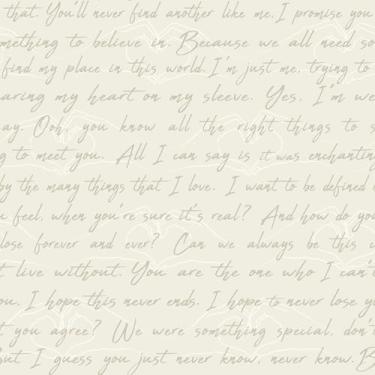 that. You'll never find another like me. I promise you
mething to believe in. Because we all need so
find my place in this world. I'm just me, trying to
aring my heart on my sleeve. Yes, I'm we
ay. Ooh, you know all the right things to s
g to meet you. All I can say is it was enchantin
by the many things that I love. I want to be defined
u feel, when you're sure it's real? And how do you
lose forever and ever? Can we always be this c
t live without. You are the one who I can't
ou. I hope this never ends. I hope to never lose yo
t you agree? We were something special, don't
But I guess you just never know, never know. B